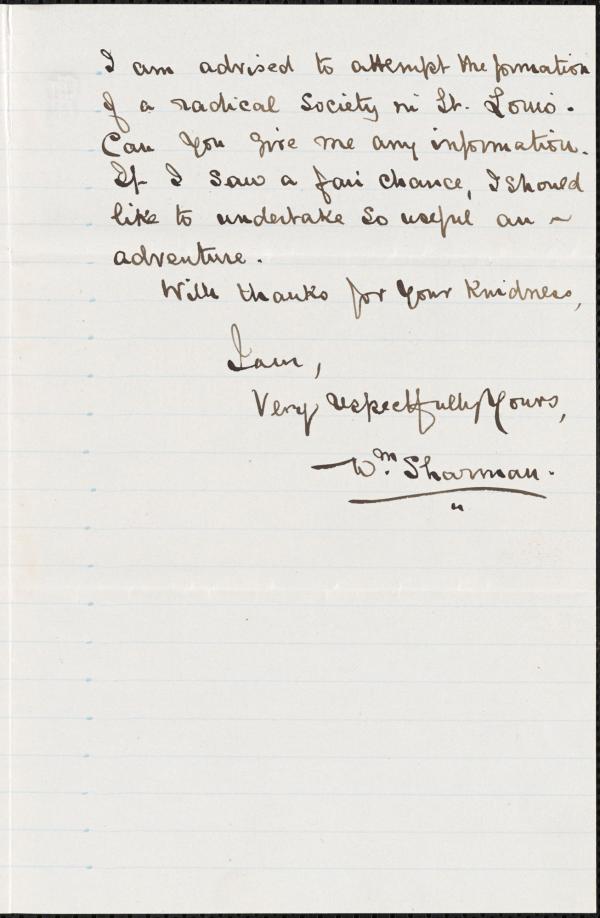 I am advised to attempt the formation
of a radical Society in St. Louis.
Can you give me any information.
If I saw a fair chance, I should
like to undertake so useful an ~
adventure.
With thanks for your kindness,
I am,
Very respectfully Yours,
Wm. Sharman.